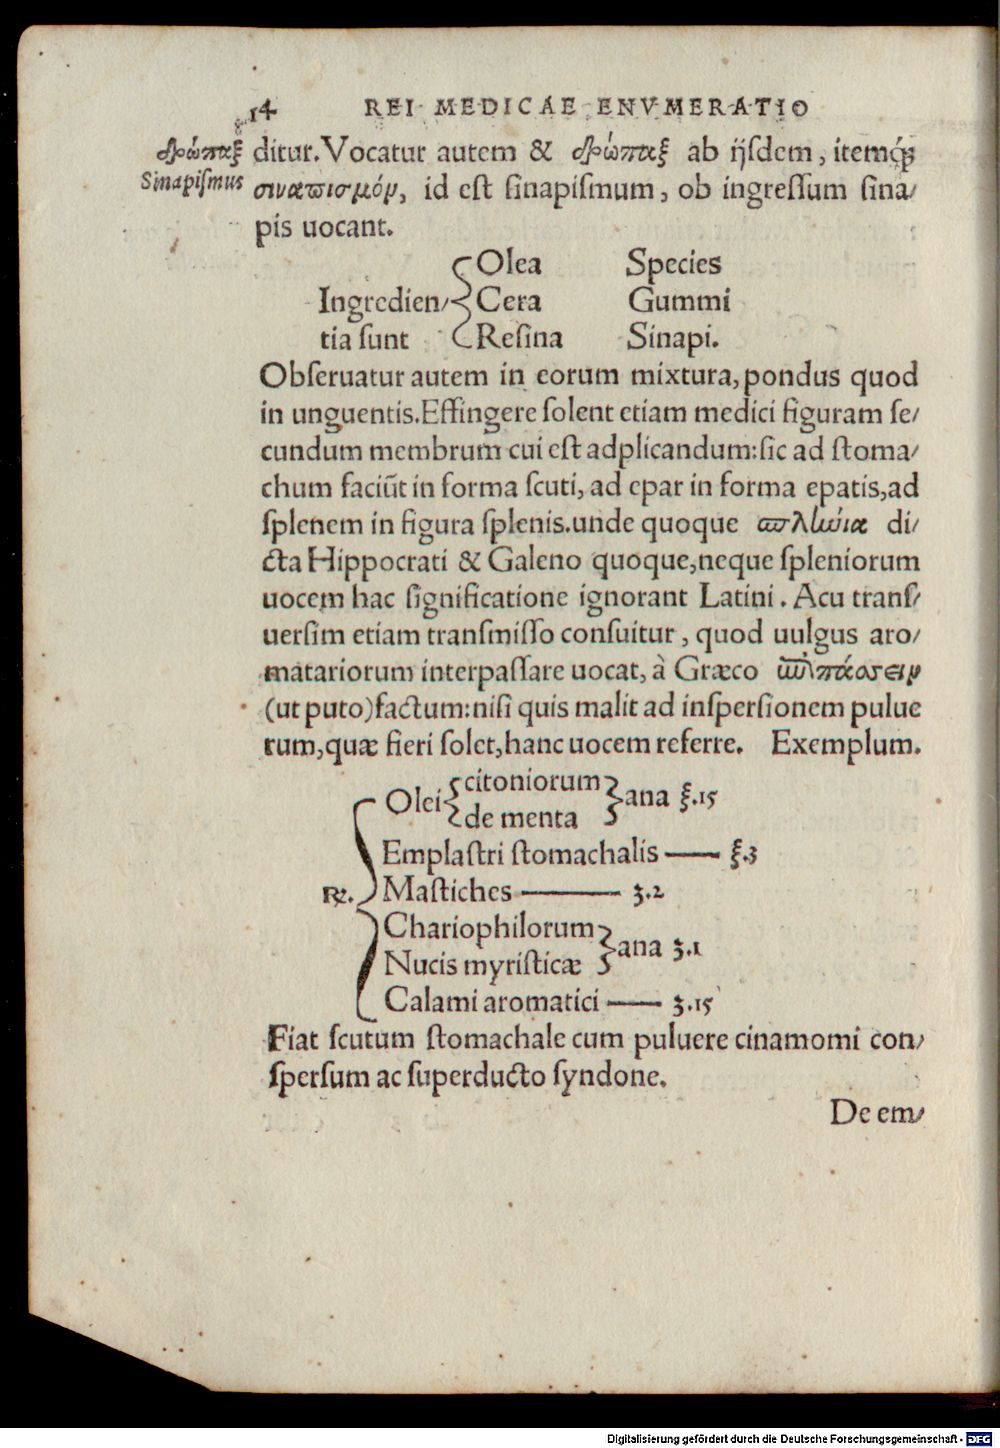 14 REI MEDICAE ENVMERATIO
δρώπαξ
Sinapiſmus
ditur. Vocatur autem & δρώπαξ ab ijſdem, itemq́ꝫ
σιναπισμόν, id est ſinapiſmum, ob ingreſſum ſina/
pis uocant.
Olea Species
Ingredien/ Cera Gummi
tia ſunt Reſina Sinapi.
Obſeruatur autem in eorum mixtura, pondus quod
in unguentis. Effingere ſolent etiam medici figuram ſe/
cundum membrum cui est adplicandum: ſic ad stoma/
chum faciũt in forma ſcuti, ad epar in forma epatis, ad
ſplenem in figura ſplenis. unde quoque di/
cta Hippocrati & Galeno quoque, neque ſpleniorum
uocem hac ſignificatione ignorant Latini. Acu tranſ/
uerſim etiam tranſmiſſo conſuitur, quod uulgus aro/
matariorum interpaſſare uocat, à Græco
(ut puto) factum: niſi quis malit ad inſperſionem pulue
rum, quæ fieri ſolet, hanc uocem referre. Exemplum.
Olei citoniorum
de menta ana ℥.15
Emplastri stomachalis —— ℥.3
℞. Mastiches ——— ʒ.2
Chariophilorum
Nucis myristicæ ana ʒ.1
Calami aromatici —— ʒ.15
Fiat ſcutum stomachale cum puluere cinamomi con/
ſperſum ac ſuperducto ſyndone.
De em/
Digitalisierung gefördert durch die Deutsche Forschungsgemeinschaft - DFG